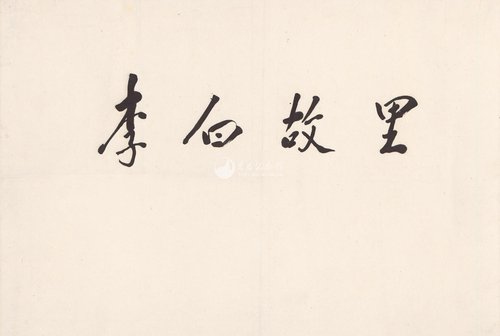 李白故里